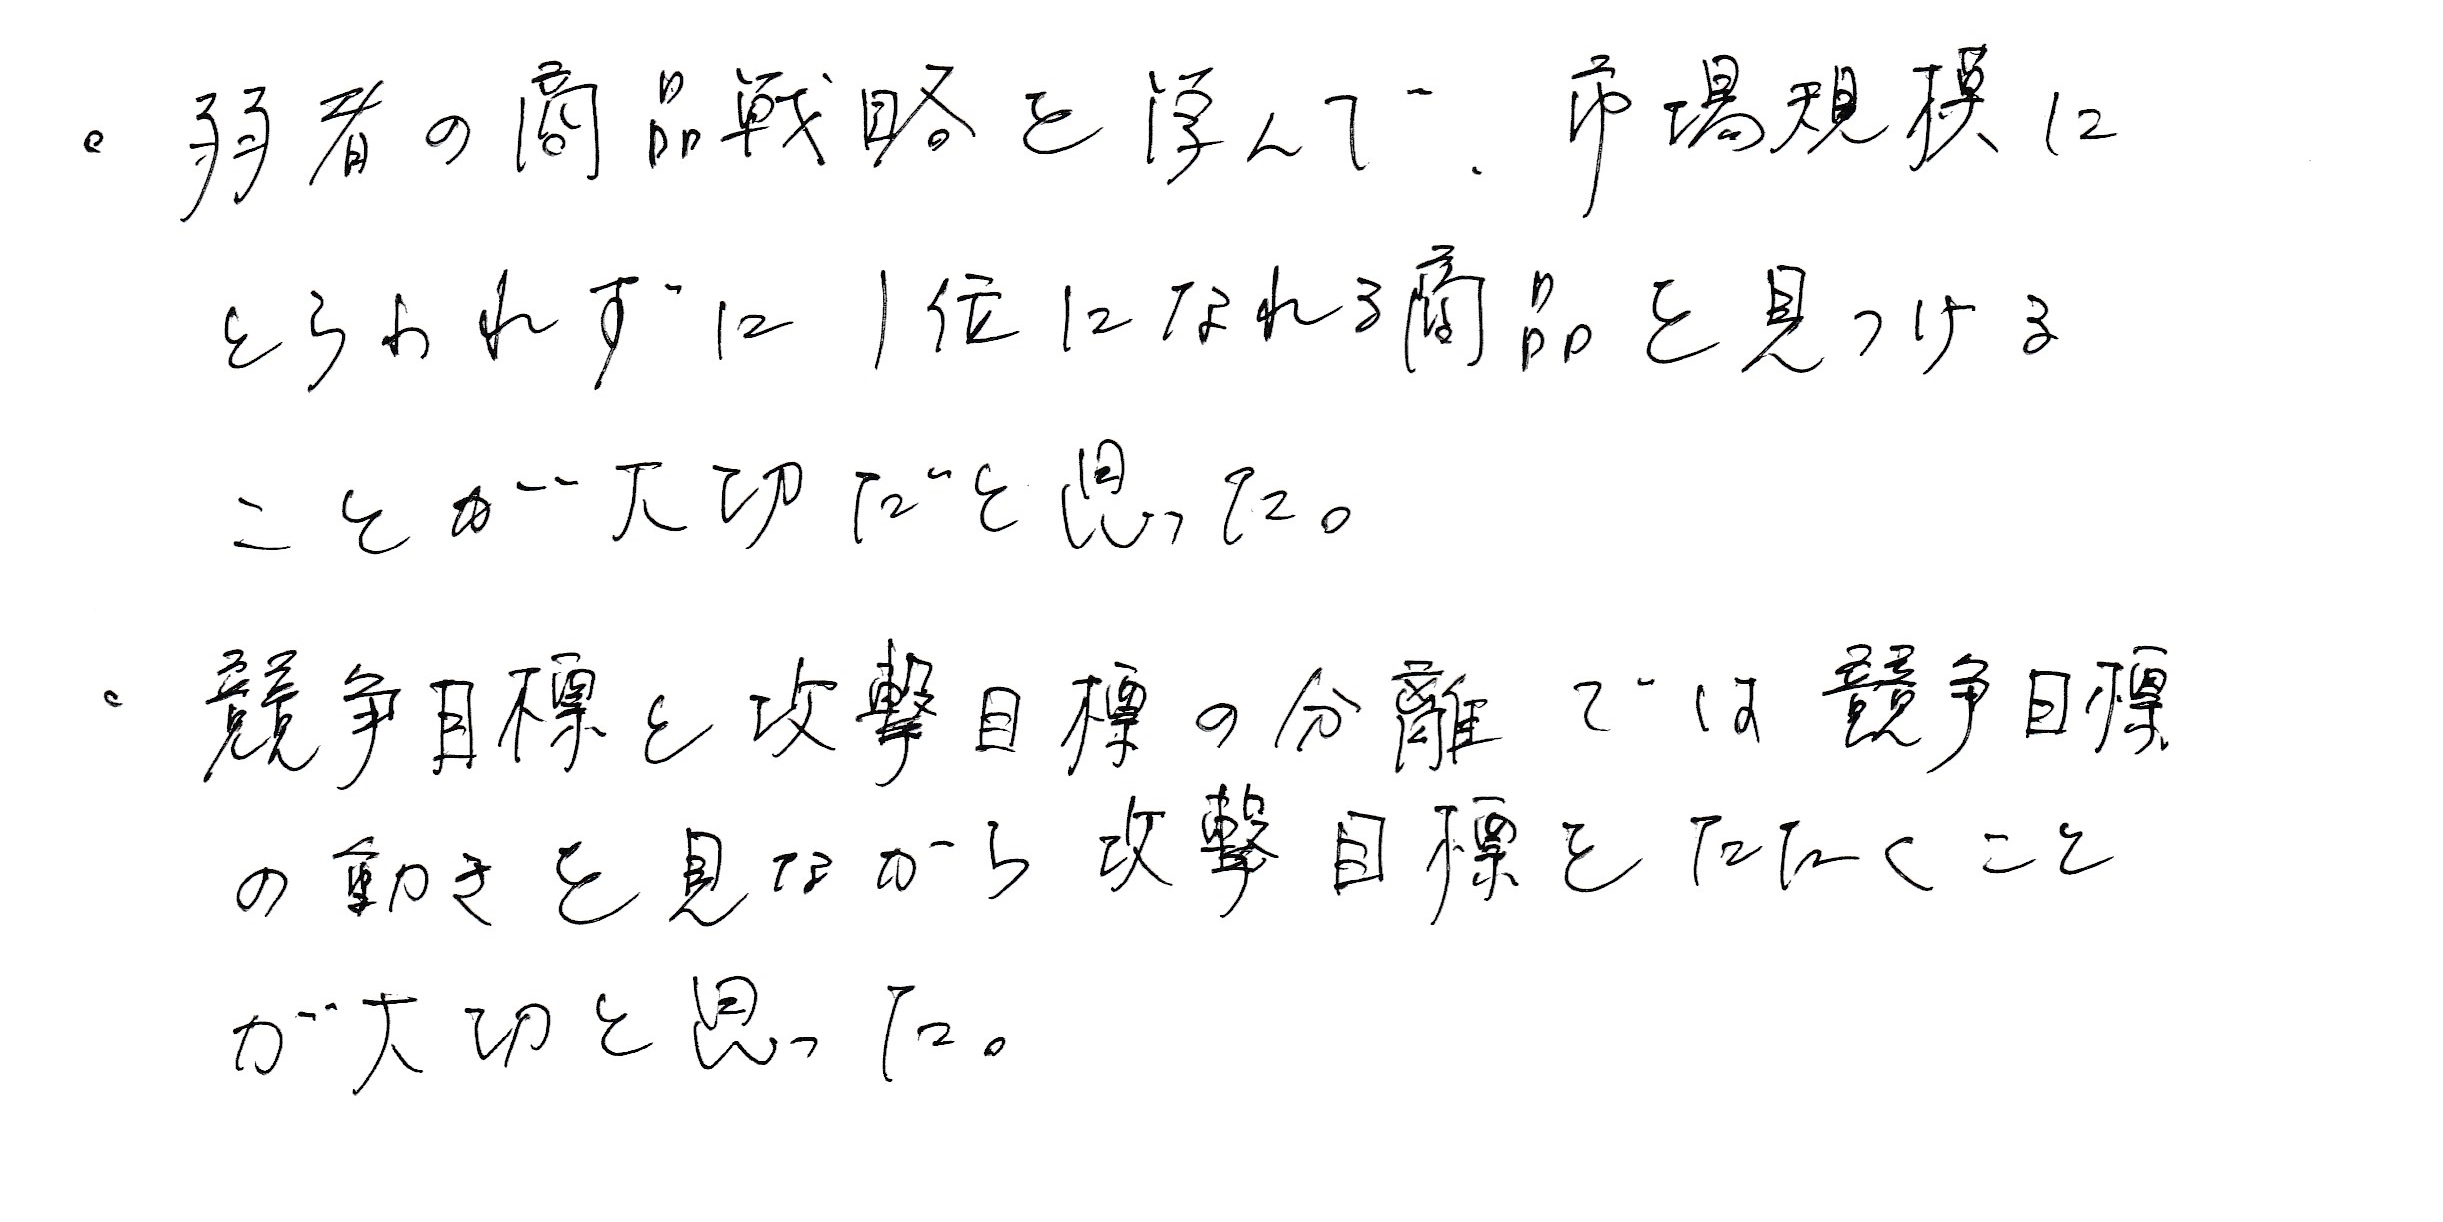 ・弱者の商品戦略を学んで、市場規模に
とらわれずに1位になれる商品を見つける
ことが大切だと思った。
・競争目標と攻撃目標の分離では競争目標
の動きを見ながら攻撃目標をたたくこと
が大切と思った。